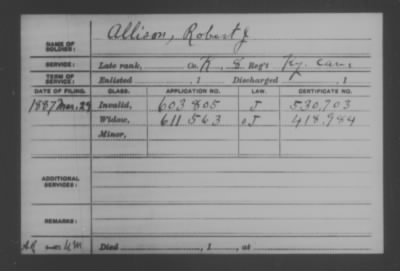 Allison, Robert J
NAME OF SOLDIER:
SERVICE: Late rank, Co. K, 8 Reg't Ky. Cav.
TERM OF SERVICE: Enlisted , 1 Discharged , 1
DATE OF FILING. CLASS. APPLICATION NO. LAW. CERTIFICATE NO.
1887 Mar. 29 Invalid, 603 805 J 530,703
Widow, 611 563 J 418,984
Minor,
ADDITIONAL SERVICES:
REMARKS:
Died , 1 , at